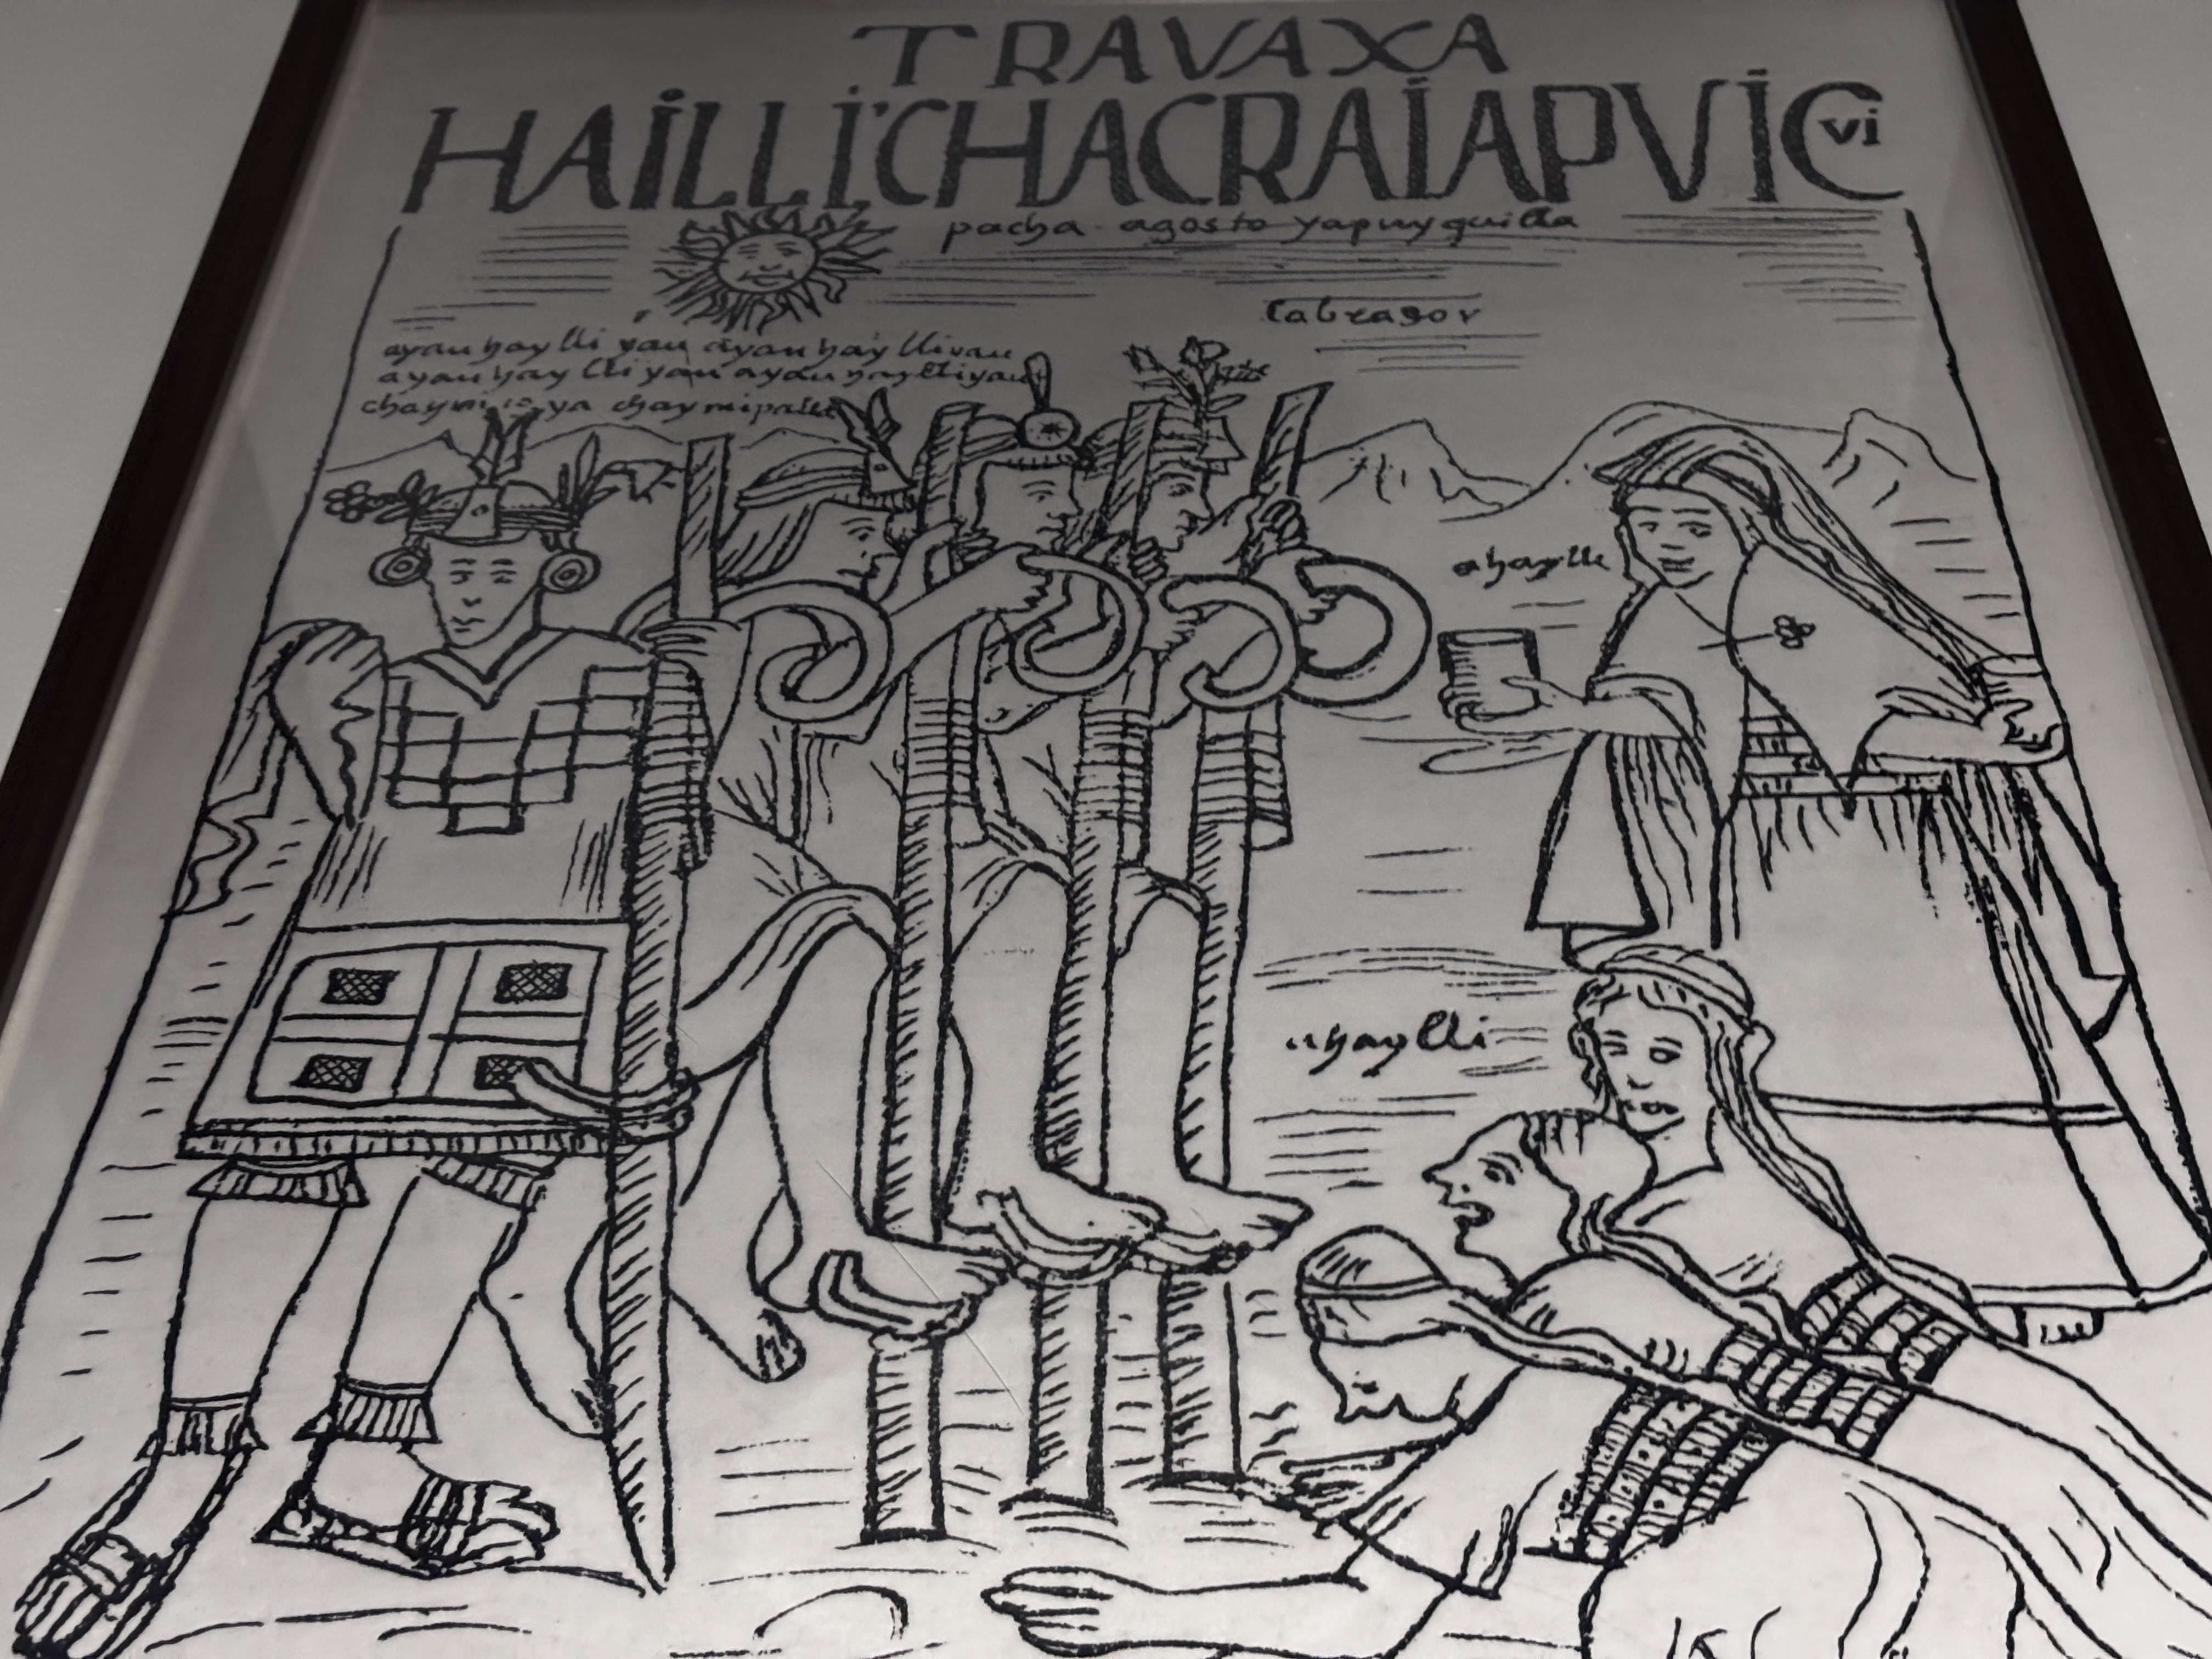 TRAVAXA
HAILLI CHACRAIAPVIC vi
pacha. agosto yapuy quilla
labrador
ayau haylli yau ayau haylli yau
ayau haylli yau ayau haylli yau
chaymi coya chaymi palla
ahaylli
ahaylli